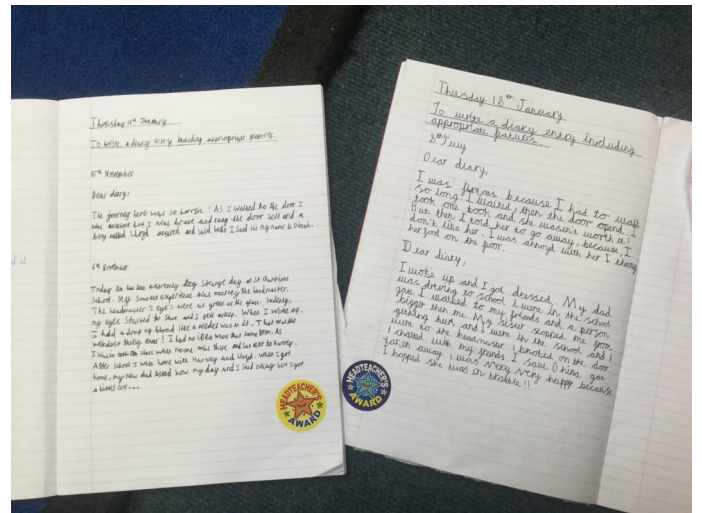 Thursday 18th January
To write a diary entry including appropriate features.
5th November
Dear diary,
The journey here was so horrible! As I walked to the door I
was anxious but I was brave and rang the door bell and a
boy called Lloyd and said hello I said is my name is Dinah.
6th November
Today has been extremely strange day at St
School. My experience was meeting the headmaster.
The headmaster's eye's were green as the
my eyes started to and I fell asleep. When I woke up.
I had a drop of blood like a needel was in it. That was the
ever! I had to
I was class when no one was there. And sat next to Harvey.
After school I went home with Harvey and Lloyd. When I got
home, my new dad asked how my day and I said okay but I got
a little
HEADTEACHER'S
AWARD
Thursday 18th January
To write a diary entry including
appropriate features.
8th July
Dear diary,
I was furios because I had to wait
so long! I waited, then the door opend. I
took one look and she wasen't worth it!
But then I told her to go away, because, I
don't like her. I was annoyd with her I
her foot on the
Dear diary,
I woke up and I got dressed. My dad
was driving to school I were in the school
gap. I walked to my friends and a person
bigger then me. My sister stopped me from
geting hurt and I went in the school and I
went to the headmaster I knoked on the door
I chated with my friends I saw. Dhina got
taken away I was very very happy because
I hopped she was in trabble!!
HEADTEACHER'S
AWARD